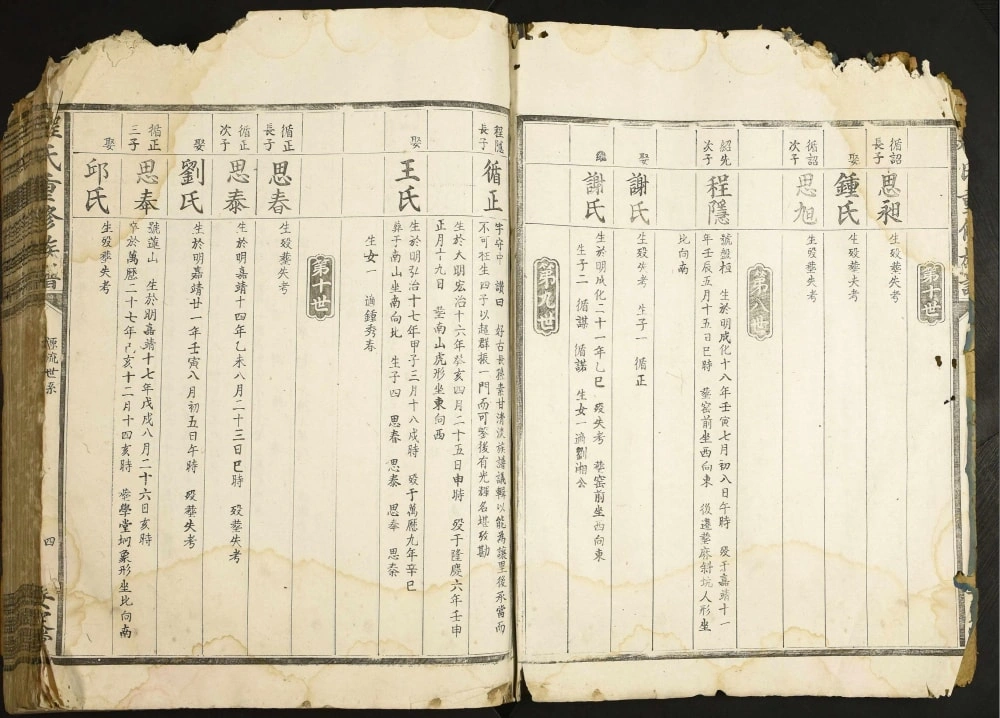 第十世
循詔長子
思昶
生歿葬失考
娶
鍾氏
生歿葬失考
循詔次子
思旭
生歿葬失考
第八世
紹先次子
程隱
號盤桓 生於明成化十八年壬寅七月初八日午時 歿于嘉靖十一
年壬辰五月十五日巳時 葬窑前坐西向東 後遷塟麻斜坑人形坐
北向南
娶
謝氏
生歿失考 生子一 循正
繼
謝氏
生於明成化二十一年乙巳 歿失考 葬窑前坐西向東
生子二 循謀 循諾 生女一適劉湘公
第九世
程隱長子
循正
字守中 譜曰 好古安蔬素甘清淡族譜議輯以能為讓里後承當而
不可枉生四子以超群振一門而可鉴後有光輝名堪攷勘
生於大明宏治十六年癸亥四月二十五日申時 歿于隆慶六年壬申
正月十九日 塟南山虎形坐東向西
娶
王氏
生於明弘治十七年甲子三月十八戌時 歿于萬歷九年辛巳
葬于南山坐南向北 生子四 思春 思泰 思奉 思秦
生女一 適鍾秀春
第十世
循正長子
思春
生歿葬失考
循正次子
思泰
生於明嘉靖十四年乙未八月二十三日巳時 歿葬失考
娶
劉氏
生於明嘉靖廿一年壬寅八月初五日午時 歿葬失考
循正三子
思奉
號蓮山 生於明嘉靖十七年戊戌八月二十六日亥時
卒於萬歷二十七年己亥十二月十四亥時 葬學堂坰象形坐北向南
娶
邱氏
生歿葬失考
程氏重修族譜
源流世系
四